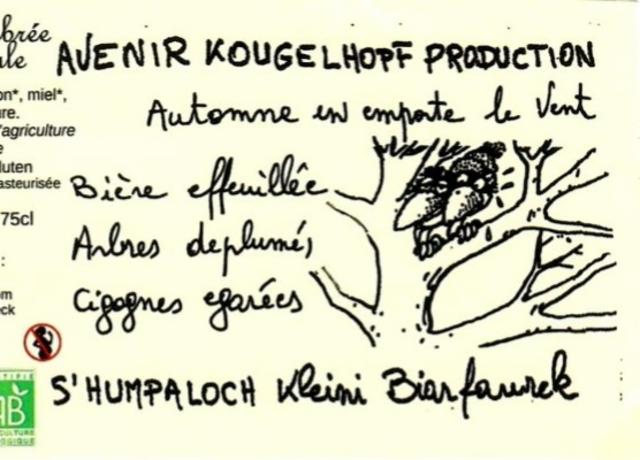 brée
ale
AVENIR KOUGELHOPF PRODUCTION
Automne en emporte le Vent
on*, miel*,
re.
'agriculture
e
luten
asteurisée
75cl
:
om
ck
Bière effeuillée
Arbres deplumés
Cigognes egarées
S'HUMPALOCH Kleini Biarfawrek
TIFIÉ
AB
CULTURE
OGIQUE